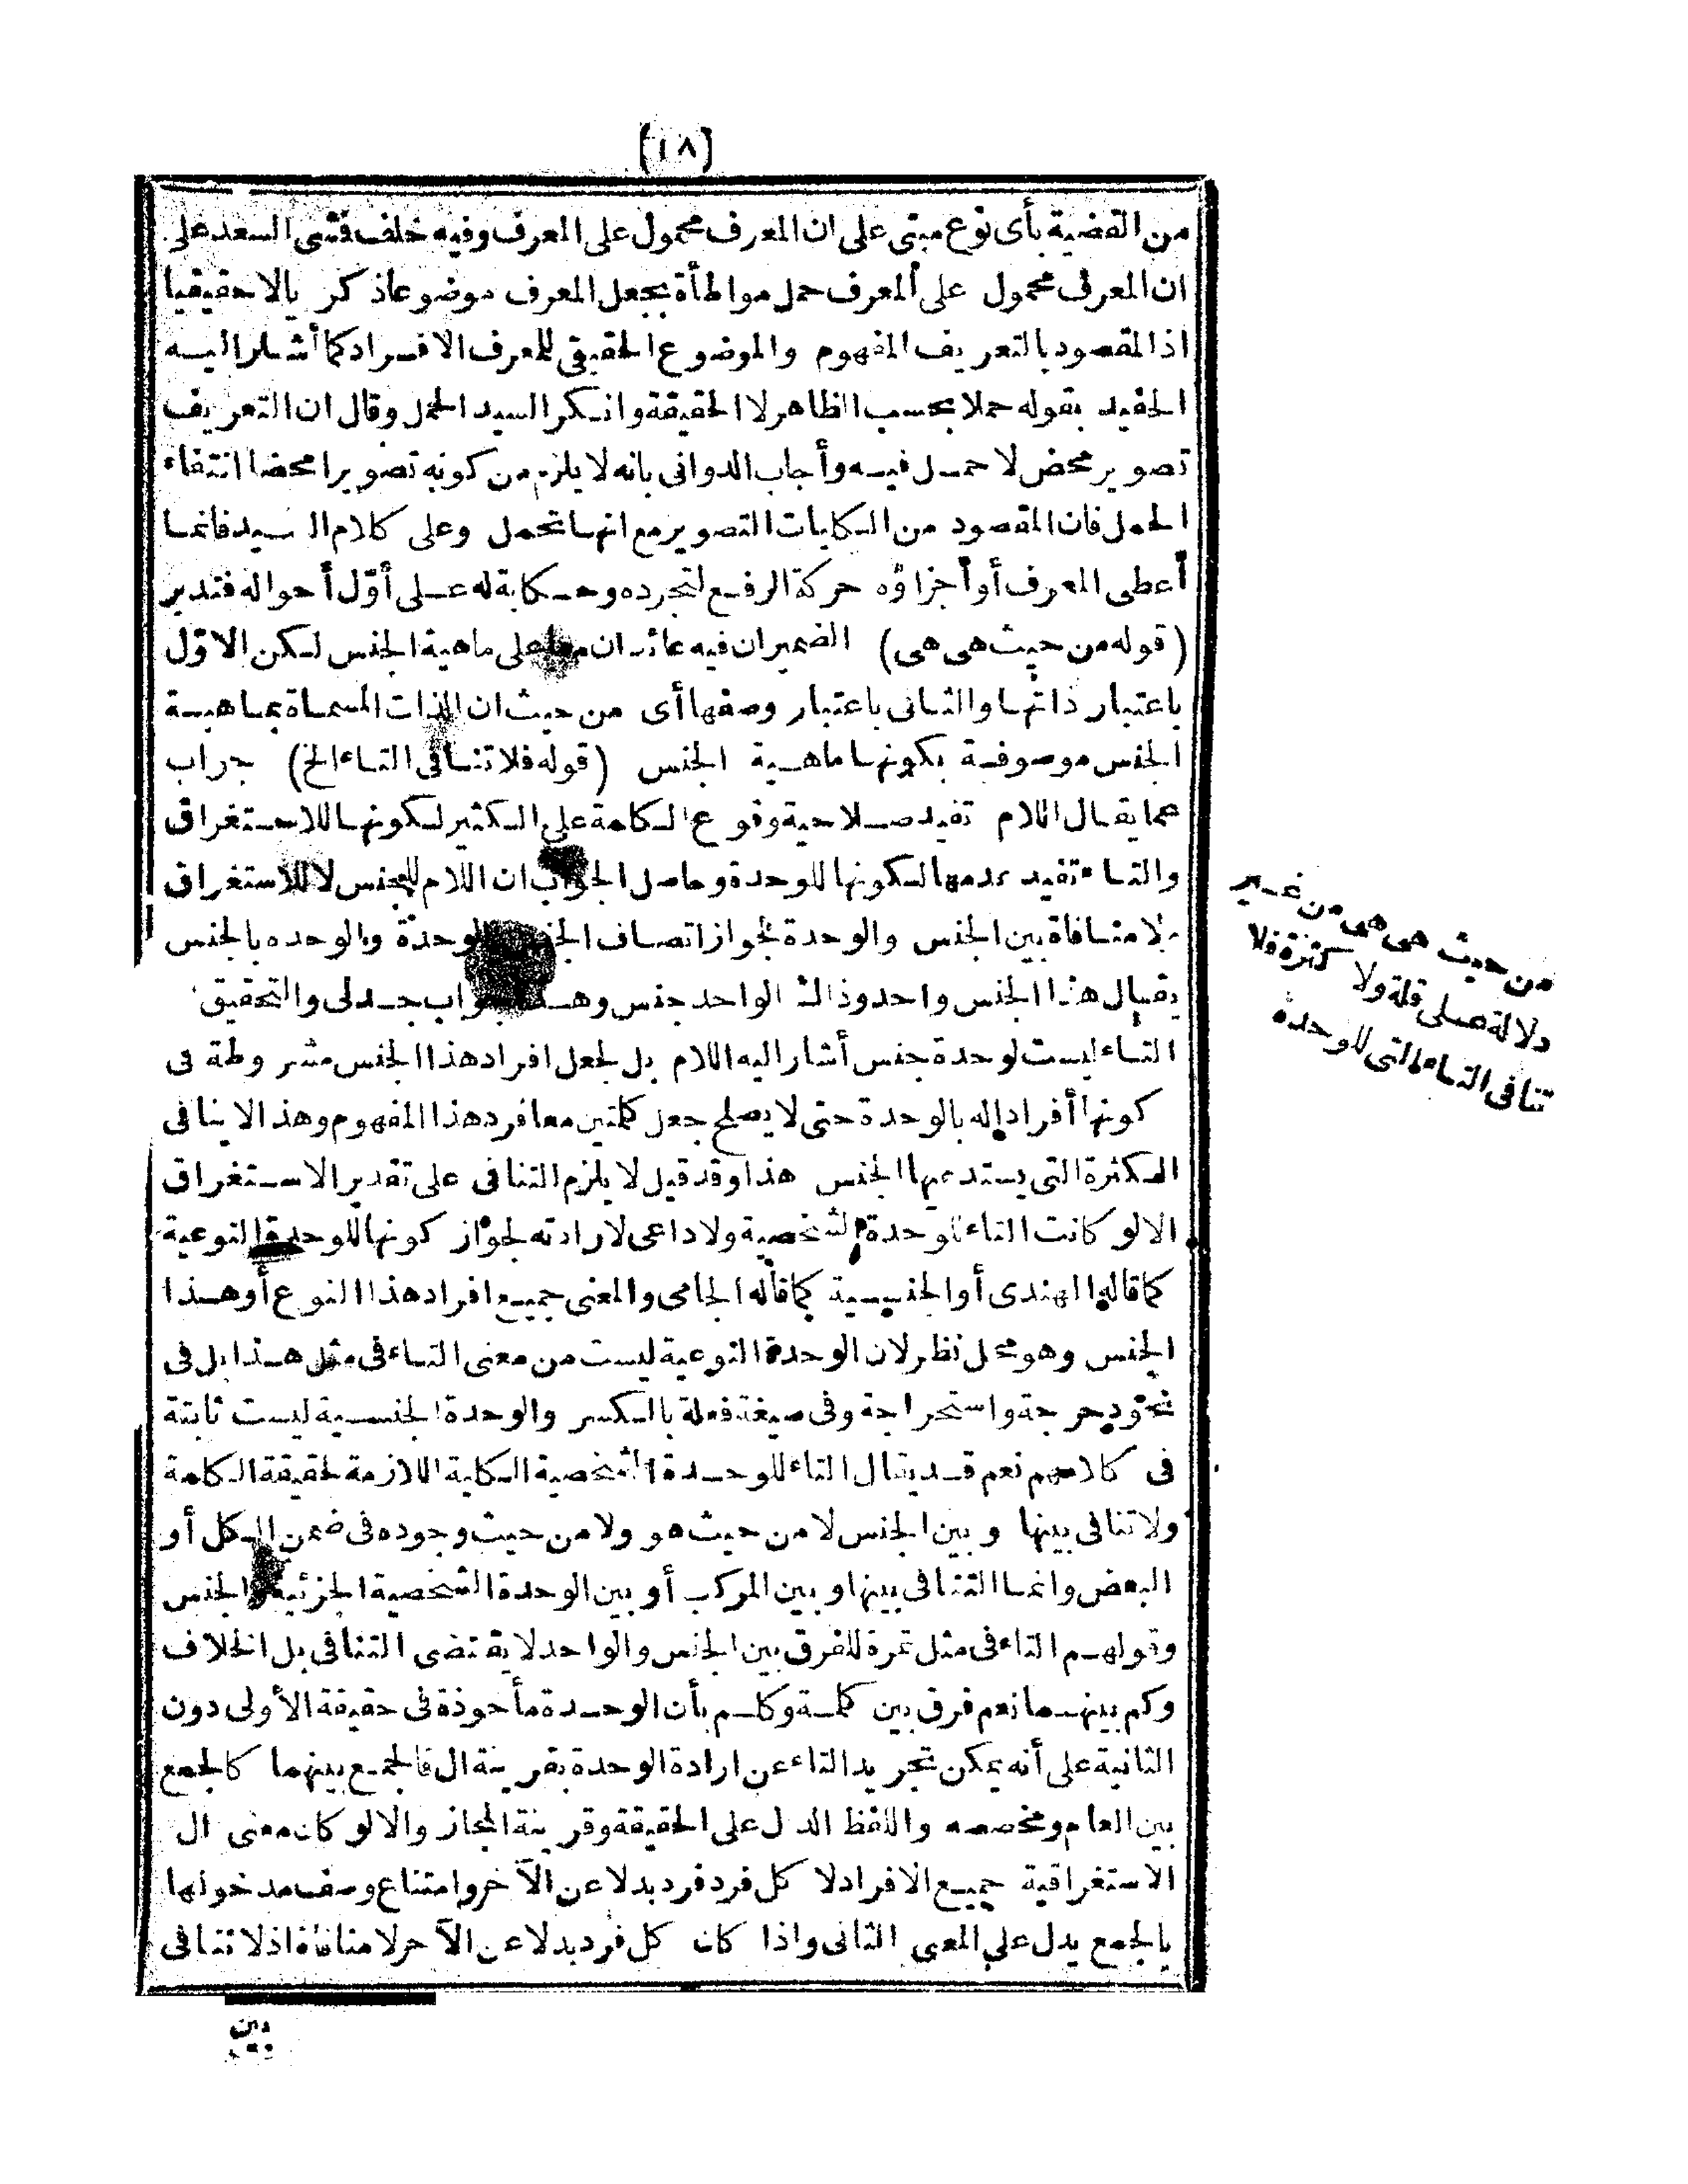 [١٨]
من القضية بأى نوع مبنى على ان المعرف محمول على المعرف وفيه خلف فشى السعد على
ان المعرف محمول على المعرف حمل مواطأة بجعل المعرف موضوعا ذكر يالا حقيقيا
اذ المقصود بالتعريف المفهوم والموضوع الحقيقى للمعرف الافراد كما أشار اليه
الحفيد بقوله حملا بحسب الظاهر لا الحقيقة وانكر السيد الحمل وقال ان التعريف
تصوير محض لا حمل فيه وأجاب الدوانى بانه لا يلزم من كونه تصويرا محضا انتفاء
الحمل فان المقصود من الكليات التصوير مع انها تحمل وعلى كلام السيد فانما
أعطى المعرف أو أجزاؤه حركة الرفع لتجرده وحكاية له على أوّل أحواله فتدبر
(قوله من حيث هى هى) الضميران فيه عائدان معا على ماهية الجنس لكن الاوّل
باعتبار ذاتها والثانى باعتبار وصفها أى من حيث ان الذات المسماة بماهية
الجنس موصوفة بكونها ماهية الجنس (قوله فلا تنافى التاء الخ) جواب
عما يقال اللام تفيد صلاحية وقوع الكلمة على الكثير لكونها للاستغراق
والتاء تفيد عدمها لكونها للوحدة وحاصل الجواب ان اللام للجنس لا للاستغراق
ولا منافاة بين الجنس والوحدة لجواز اتصاف الجنس بالوحدة والوحدة بالجنس
يقال هذا الجنس واحد وذاك الواحد جنس وهذا جواب جدلى والتحقيق
التاء ليست لوحدة جنس أشار اليه اللام بل لجعل افراد هذا الجنس مشروطة فى
كونها أفراد اله بالوحدة حتى لا يصلح جعل كلمتين معا فرد هذا المفهوم وهذا لا ينافى
الكثرة التى يستدعيها الجنس هذا وقد قيل لا يلزم التنافى على تقدير الاستغراق
الا لو كانت التاء للوحدة الشخصية ولا داعى لارادته لجواز كونها للوحدة النوعية
كما قاله الهندى أو الجنسية كما قاله الجامى والمعنى جميع افراد هذا النوع أو هذا
الجنس وهو محل نظر لان الوحدة النوعية ليست من معنى التاء فى مثل هذا بل فى
نحو دحرجة واستخراجة وفى صيغة فعلة بالكسر والوحدة الجنسية ليست ثابتة
فى كلامهم نعم قد يقال التاء للوحدة الشخصية الكلية اللازمة لحقيقة الكلمة
ولا تنافى بينها وبين الجنس لا من حيث هو ولا من حيث وجوده فى ضمن الكل أو
البعض وانما التنافى بينها وبين المركب أو بين الوحدة الشخصية الجزئية والجنس
وقولهم التاء فى مثل تمرة للفرق بين الجنس والواحد لا يقتضى التنافى بل الخلاف
وكم بينهما نعم فرق بين كلمة وكلم بأن الوحدة مأخوذة فى حقيقة الأولى دون
الثانية على أنه يمكن تجريد التاء عن ارادة الوحدة بقرينة ال فالجمع بينهما كالجمع
بين العام ومخصصه واللفظ الدال على الحقيقة وقرينة المجاز والا لو كان معنى ال
الاستغراقية جميع الافراد لا كل فرد فرد بدلا عن الآخر وامتناع وصف مدخولها
بالجمع يدل على المعنى الثانى واذا كان كل فرد بدلا عن الآخر لا منافاة اذ لا تنافى
بين
من حيث هى هى من غير
دلالة على قلة ولا كثرة فلا
تنافى التاء التى للوحدة